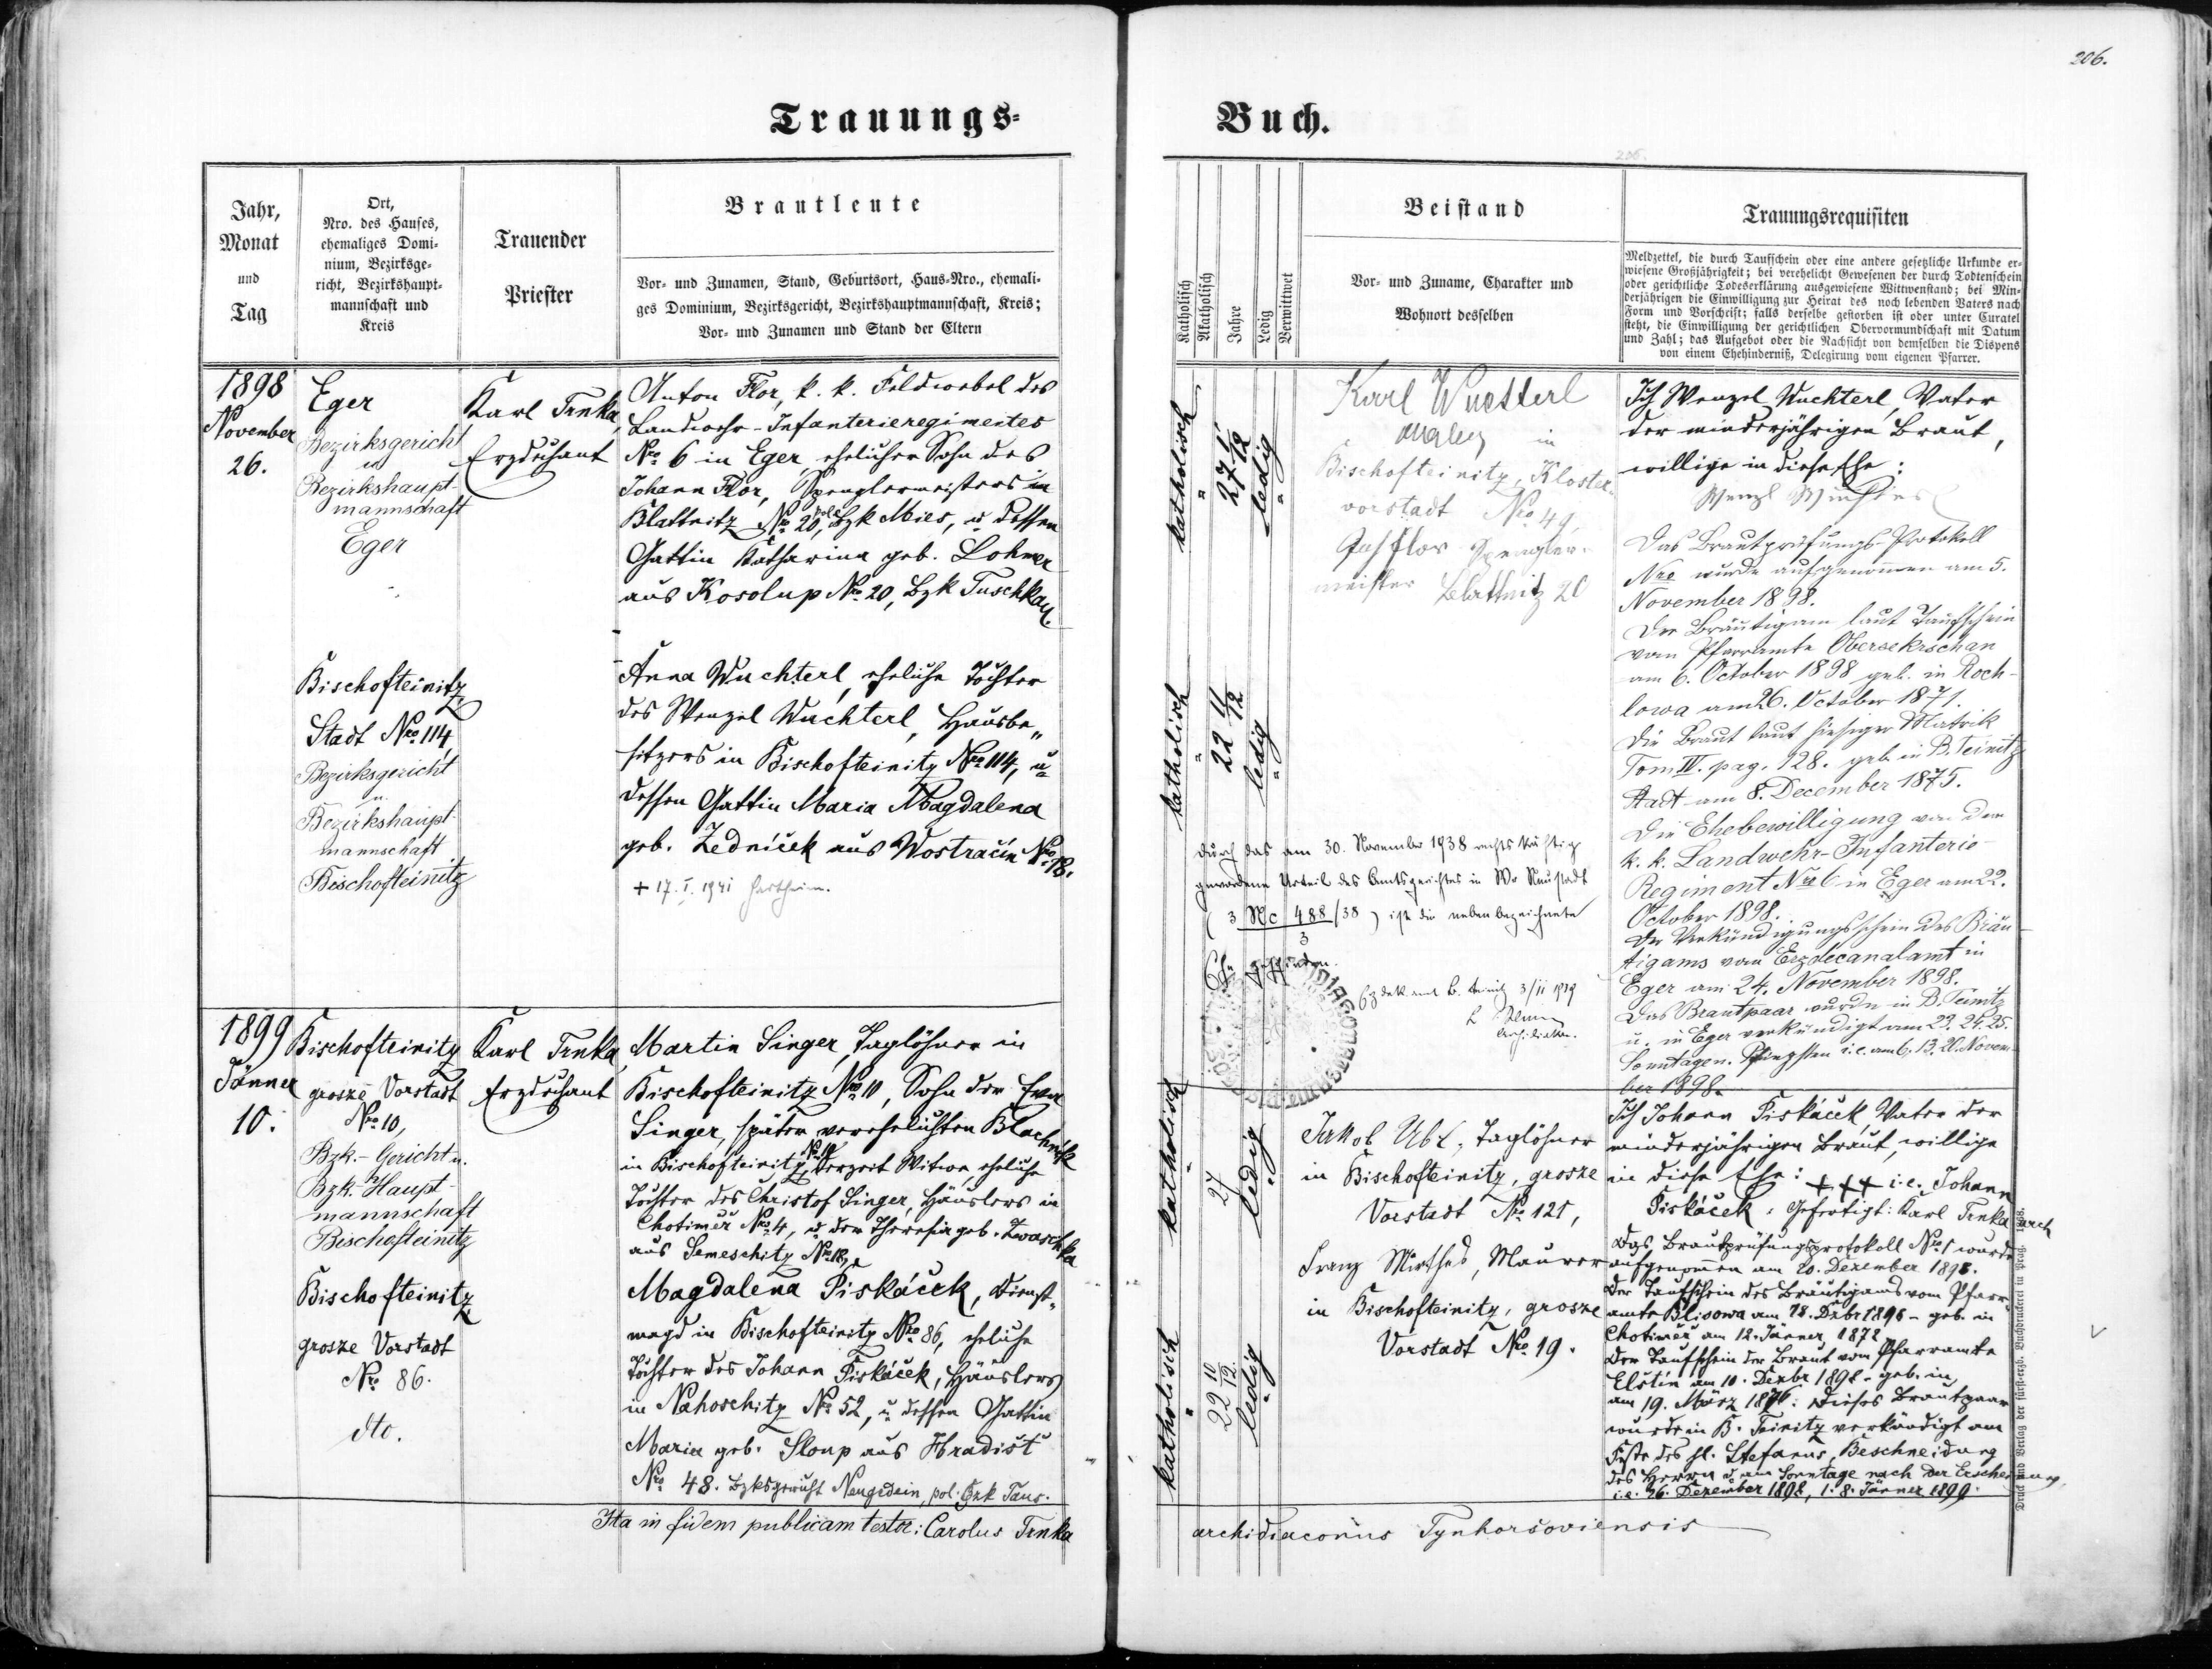 206.
Trauungs=
Buch.
206.
Jahr,
Monat
und
Tag
Ort,
Nro. des Hauses,
ehemaliges Domi-
nium, Bezirksge-
richt, Bezirkshaupt-
mannschaft und
Kreis
Trauender
Priester
Brautleute
Vor- und Zunamen, Stand, Geburtsort, Haus-Nro., ehemali-
ges Dominium, Bezirksgericht, Bezirkshauptmannschaft, Kreis;
Vor- und Zunamen und Stand der Eltern
Katholisch
Akatholisch
Jahre
Ledig
Verwittwet
Beistand
Vor- und Zuname, Charakter und
Wohnort desselben
Trauungsrequisiten
Meldzettel, die durch Taufschein oder eine andere gesetzliche Urkunde er-
wiesene Großjährigkeit; bei verehelicht Gewesenen der durch Todtenschein
oder gerichtliche Todeserklärung ausgewiesene Wittwenstand; bei Min-
derjährigen die Einwilligung zur Heirat des noch lebenden Vaters nach
Form und Vorschrift; falls derselbe gestorben ist oder unter Curatel
steht, die Einwilligung der gerichtlichen Obervormundschaft mit Datum
und Zahl; das Aufgebot oder die Nachsicht von demselben die Dispens
von einem Ehehinderniß, Delegirung vom eigenen Pfarrer.
1898
November
26.
Eger
Bezirksgericht
u.
Bezirkshaupt-
mannschaft
Eger
Karl Trnka,
Erzdechant
Anton Flor, k. k. Feldwebel des
Landwehr-Infanterieregimentes
Nro 6 in Eger, ehelicher Sohn des
Johann Flor, Spenglermeisters in
Blattnitz Nro 20, pol. Bzk Mies, u. dessen
Gattin Katharina geb. Lohmer
aus Kosolup Nro 20, Bzk Tuschkau.
Bischofteinitz
Stadt Nro 114,
Bezirksgericht
u.
Bezirkshaupt-
mannschaft
Bischofteinitz
Anna Wuchterl, eheliche Tochter
des Wenzel Wuchterl, Hausbe„
sitzers in Bischofteinitz Nro 114, u.
dessen Gattin Maria Magdalena
geb. Žedníček aus Wostračín Nro 18.
+ 17. I. 1941 Hartheim.
katholisch
"
27 1/12
ledig
"
katholisch
"
22 11/12
ledig
"
Karl Wuchterl
in
Bischofteinitz, Kloster-
vorstadt Nro 49,
Joh Flor Spengler-
meister Blattnitz 20
durch das am 30. November 1938 rechtskräftig
gewordene Urteil des Amtsgerichtes in Wr Neustadt
(3 Nc 488/38) ist die nebenbezeichnete
3
Ehe geschieden.
Erzdekanat B. Teinitz 3/II 1939
Ich Wenzel Wuchterl, Vater
der minderjährigen Braut,
willige in diese Ehe:
Wenzl Wuchterl
Das Brautprüfungs-Protokoll
Nro wurde aufgenommen am 5.
November 1898.
Der Bräutigam laut Taufschein
vom Pfarramte Obersekrschan
am 6. October 1898 geb. in Roch-
lowa am 26. October 1871.
Die Braut laut hiesiger Matrik
Tom IV. pag. 128. geb. in B. Teinitz
Stadt am 8. December 1875.
Die Ehebewilligung von dem
k. k. Landwehr-Infanterie-
Regiment Nro 6 in Eger am 22.
October 1898.
Der Verkündigungsschein des Bräu-
tigams vom Erzdecanalamt in
Eger am 24. November 1898.
Das Brautpaar wurde in B. Teinitz
u. in Eger verkündigt am 23. 24. 25.
Sonntage n. Pfingsten i. e. am 6. 13. 20. Novem-
ber 1898.
1899
Jänner
10.
Bischofteinitz
grosze Vorstadt
Nro 10,
Bzk.- Gericht u.
Bzk. Haupt-
mannschaft
Bischofteinitz
Karl Trnka,
Erzdechant
Martin Singer, Taglöhner in
Bischofteinitz Nro 10, Sohn der Eva
Singer, später verehelichten Blachnik
in Bischofteinitz Nro 10, derzeit Witwe, eheliche
Tochter des Christof Singer, Häuslers in
Chotiměř Nro 4, u. der Theresia geb. Zwaschka
aus Semeschitz Nro 18.
Bischofteinitz
grosze Vorstadt
Nro 86.
dto.
Magdalena Piskáček, Dienst„
magd in Bischofteinitz Nro 86, eheliche
Tochter des Johann Piskáček, Häuslers
in Nahoschitz Nro 52, u. dessen Gattin
Maria geb. Sloup aus Hradišt
Nro 48. Bzksgericht Neugedein, pol. Bzk Taus.
katholisch
"
27
ledig
"
katholisch
"
22 10/12
ledig
"
Jakob Ubl, Taglöhner
in Bischofteinitz, grosze
Vorstadt Nro 121,
Franz Mirthes, Maurer
in Bischofteinitz, grosze
Vorstadt Nro 19.
Ich Johann Piskáček, Vater der
minderjährigen Braut, willige
in diese Ehe: +++ i. e. Johann
Piskáček. Gefertigt: Karl Trnka arch
Das Brautprüfungsprotokoll Nro 1 wurde
aufgenommen am 20. Dezember 1898.
Der Taufschein des Bräutigams vom Pfarr-
amte Blisowa am 18. Dzbr 1898 - geb. in
Chotiměř am 12. Jänner 1872
Der Taufschein der Braut vom Pfarramte
Elstin am 10. Dezbr 1898 - geb. in
am 19. März 1876. Dieses Brautpaar
wurde in B. Teinitz verkündigt am
Feste des hl. Stefanus, Beschneidung
des Herrn u. am Sonntage nach der Erscheinung,
i. e. 26. Dezember 1898, 1. 8. Jänner 1899.
Ita in fidem publicam testor: Carolus Trnka
archidiaconus Tynhoršoviensis
Druck und Verlag der fürst-erzb. Buchdruckerei in Prag. 1868.